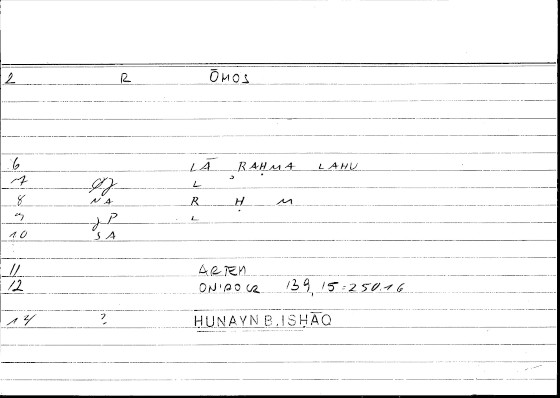 2 R ŌMOS
6 LĀ RAḤMA LAHU
7 L
8 NA R Ḥ M
9 L
10 SA
11 ARTEM
12 ONIROCR 139, 15=250.16
14 ? HUNAYN B. ISḤĀQ